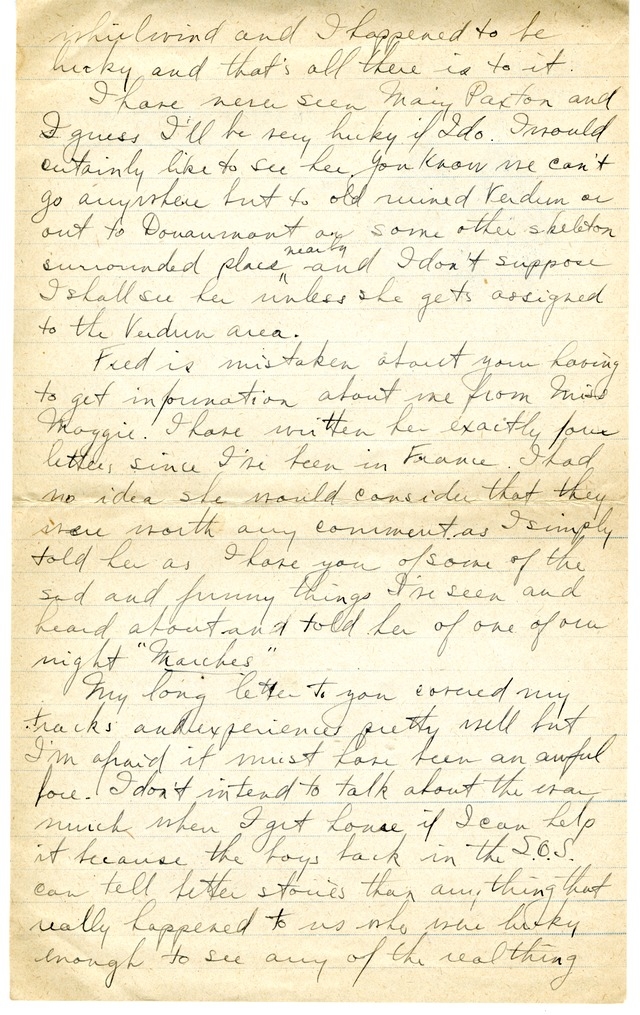 whirlwind and I happened to be
lucky and that's all there is to it.
I have never seen Mary Paxton and
I guess I'll be very lucky if I do. I would
certainly like to see her. You know we can't
go anywhere but to old ruined Verdun or
out to Douaumont or some other skeleton
surrounded place nearby and I don't suppose
I shall see her unless she gets assigned
to the Verdun area.
Fred is mistaken about your having
to get information about me from Miss
Maggie. I have written her exactly four
letters since I've been in France. I had
no idea she would consider that they
were worth any comment as I simply
told her as I have you of some of the
sad and funny things I've seen and
heard about and told her of one of our
night "Marches"
My long letter to you covered my
tracks and experiences pretty well but
I'm afraid it must have been an awful
bore. I don't intend to talk about the war
much when I get home if I can help
it because the boys back in the S.O.S.
can tell better stories than anything that
really happened to us who were lucky
enough to see any of the real thing